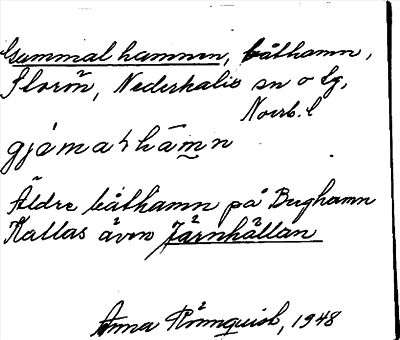 Gammal hamnen, båthamn,
Storön, Nederkalix sn o lg,
Norrb. l
gjó mạ ʰ hā m̰ n
Äldre båthamn på Berghamn
Kallas även Järnhällan
Anna Rönnquist, 1948